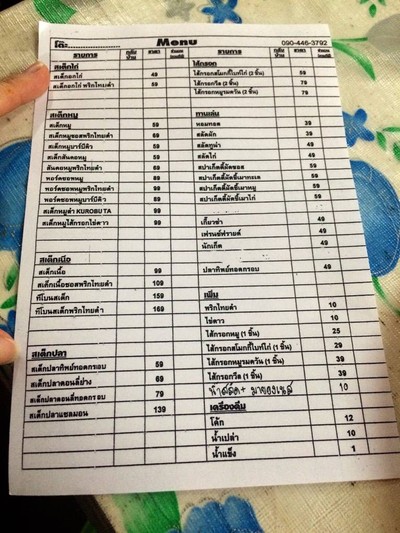 โต๊ะ....................
Menu
090-446-3792
รายการ ราคา
สเต็กไก่
สเต็กอกไก่ 49
สเต็กอกไก่ พริกไทยดำ 59
สเต็กหมู
สเต็กหมู 59
สเต็กหมูซอสพริกไทยดำ 69
สเต็กหมูบาร์บีคิว 59
สเต็กสันคอหมู 59
สันคอหมูพริกไทยดำ 69
พอร์คชอพหมู 89
พอร์คชอพหมูพริกไทยดำ 99
พอร์คชอพหมูบาร์บีคิว 89
สเต็กหมูดำ KUROBUTA 99
สเต็กหมูไส้กรอกไข่ดาว 99
สเต็กเนื้อ
สเต็กเนื้อ 99
สเต็กเนื้อซอสพริกไทยดำ 109
ทีโบนสเต็ก 159
ทีโบนสเต็กพริกไทยดำ 169
สเต็กปลา
สเต็กปลาทิพย์ทอดกรอบ 59
สเต็กปลาดอลลี่ย่าง 69
สเต็กปลาดอลลี่ทอดกรอบ 79
สเต็กปลาแซลมอน 139
รายการ ราคา
ไส้กรอก
ไส้กรอกสโมกกี้ไบท์ไก่ (2 ชิ้น) 59
ไส้กรอกวีล (2 ชิ้น) 79
ไส้กรอกหมูรมควัน (2 ชิ้น) 79
ทานเล่น
หอมทอด 39
สลัดผัก 39
สลัดทูน่า 49
สลัดไก่ 49
สปาเก็ตตี้ผัดซอส 59
สปาเก็ตตี้ผัดขี้เมาทะเล 59
สปาเก็ตตี้ผัดขี้เมาหมู 59
สปาเก็ตตี้ผัดขี้เมาไก่ 59
เกี๊ยวซ่า 49
เฟรนช์ฟรายด์ 49
นักเก็ต 49
ปลาทิพย์ทอดกรอบ 49
เพิ่ม
พริกไทยดำ 10
ไข่ดาว 10
ไส้กรอกหมู (1 ชิ้น) 25
ไส้กรอกสโมกกี้ไบท์ไก่ (1 ชิ้น) 29
ไส้กรอกหมูรมควัน (1 ชิ้น) 39
ไส้กรอกวีล (1 ชิ้น) 39
น้ำสลัด + มายองเนส 10
เครื่องดื่ม
โค้ก 12
น้ำเปล่า 10
น้ำแข็ง 1